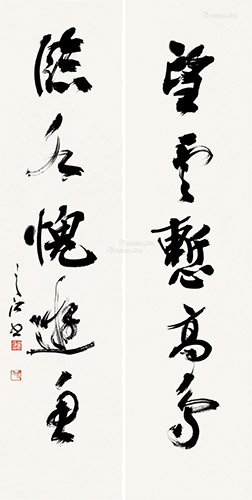 望云慙高鸟
临水愧游鱼